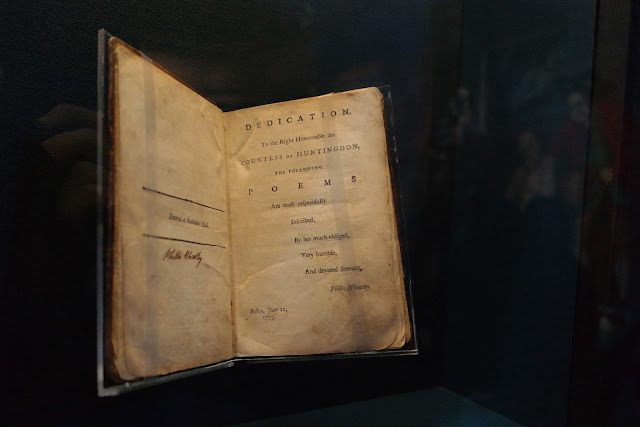 Entered at Stationers Hall.
Phillis Wheatley
DEDICATION.
To the Right Honourable the
COUNTESS OF HUNTINGDON,
THE FOLLOWING
POEMS
Are most respectfully
Inscribed,
By her much obliged,
Very humble,
And devoted Servant,
Phillis Wheatley.
Boston, June 12,
1773.